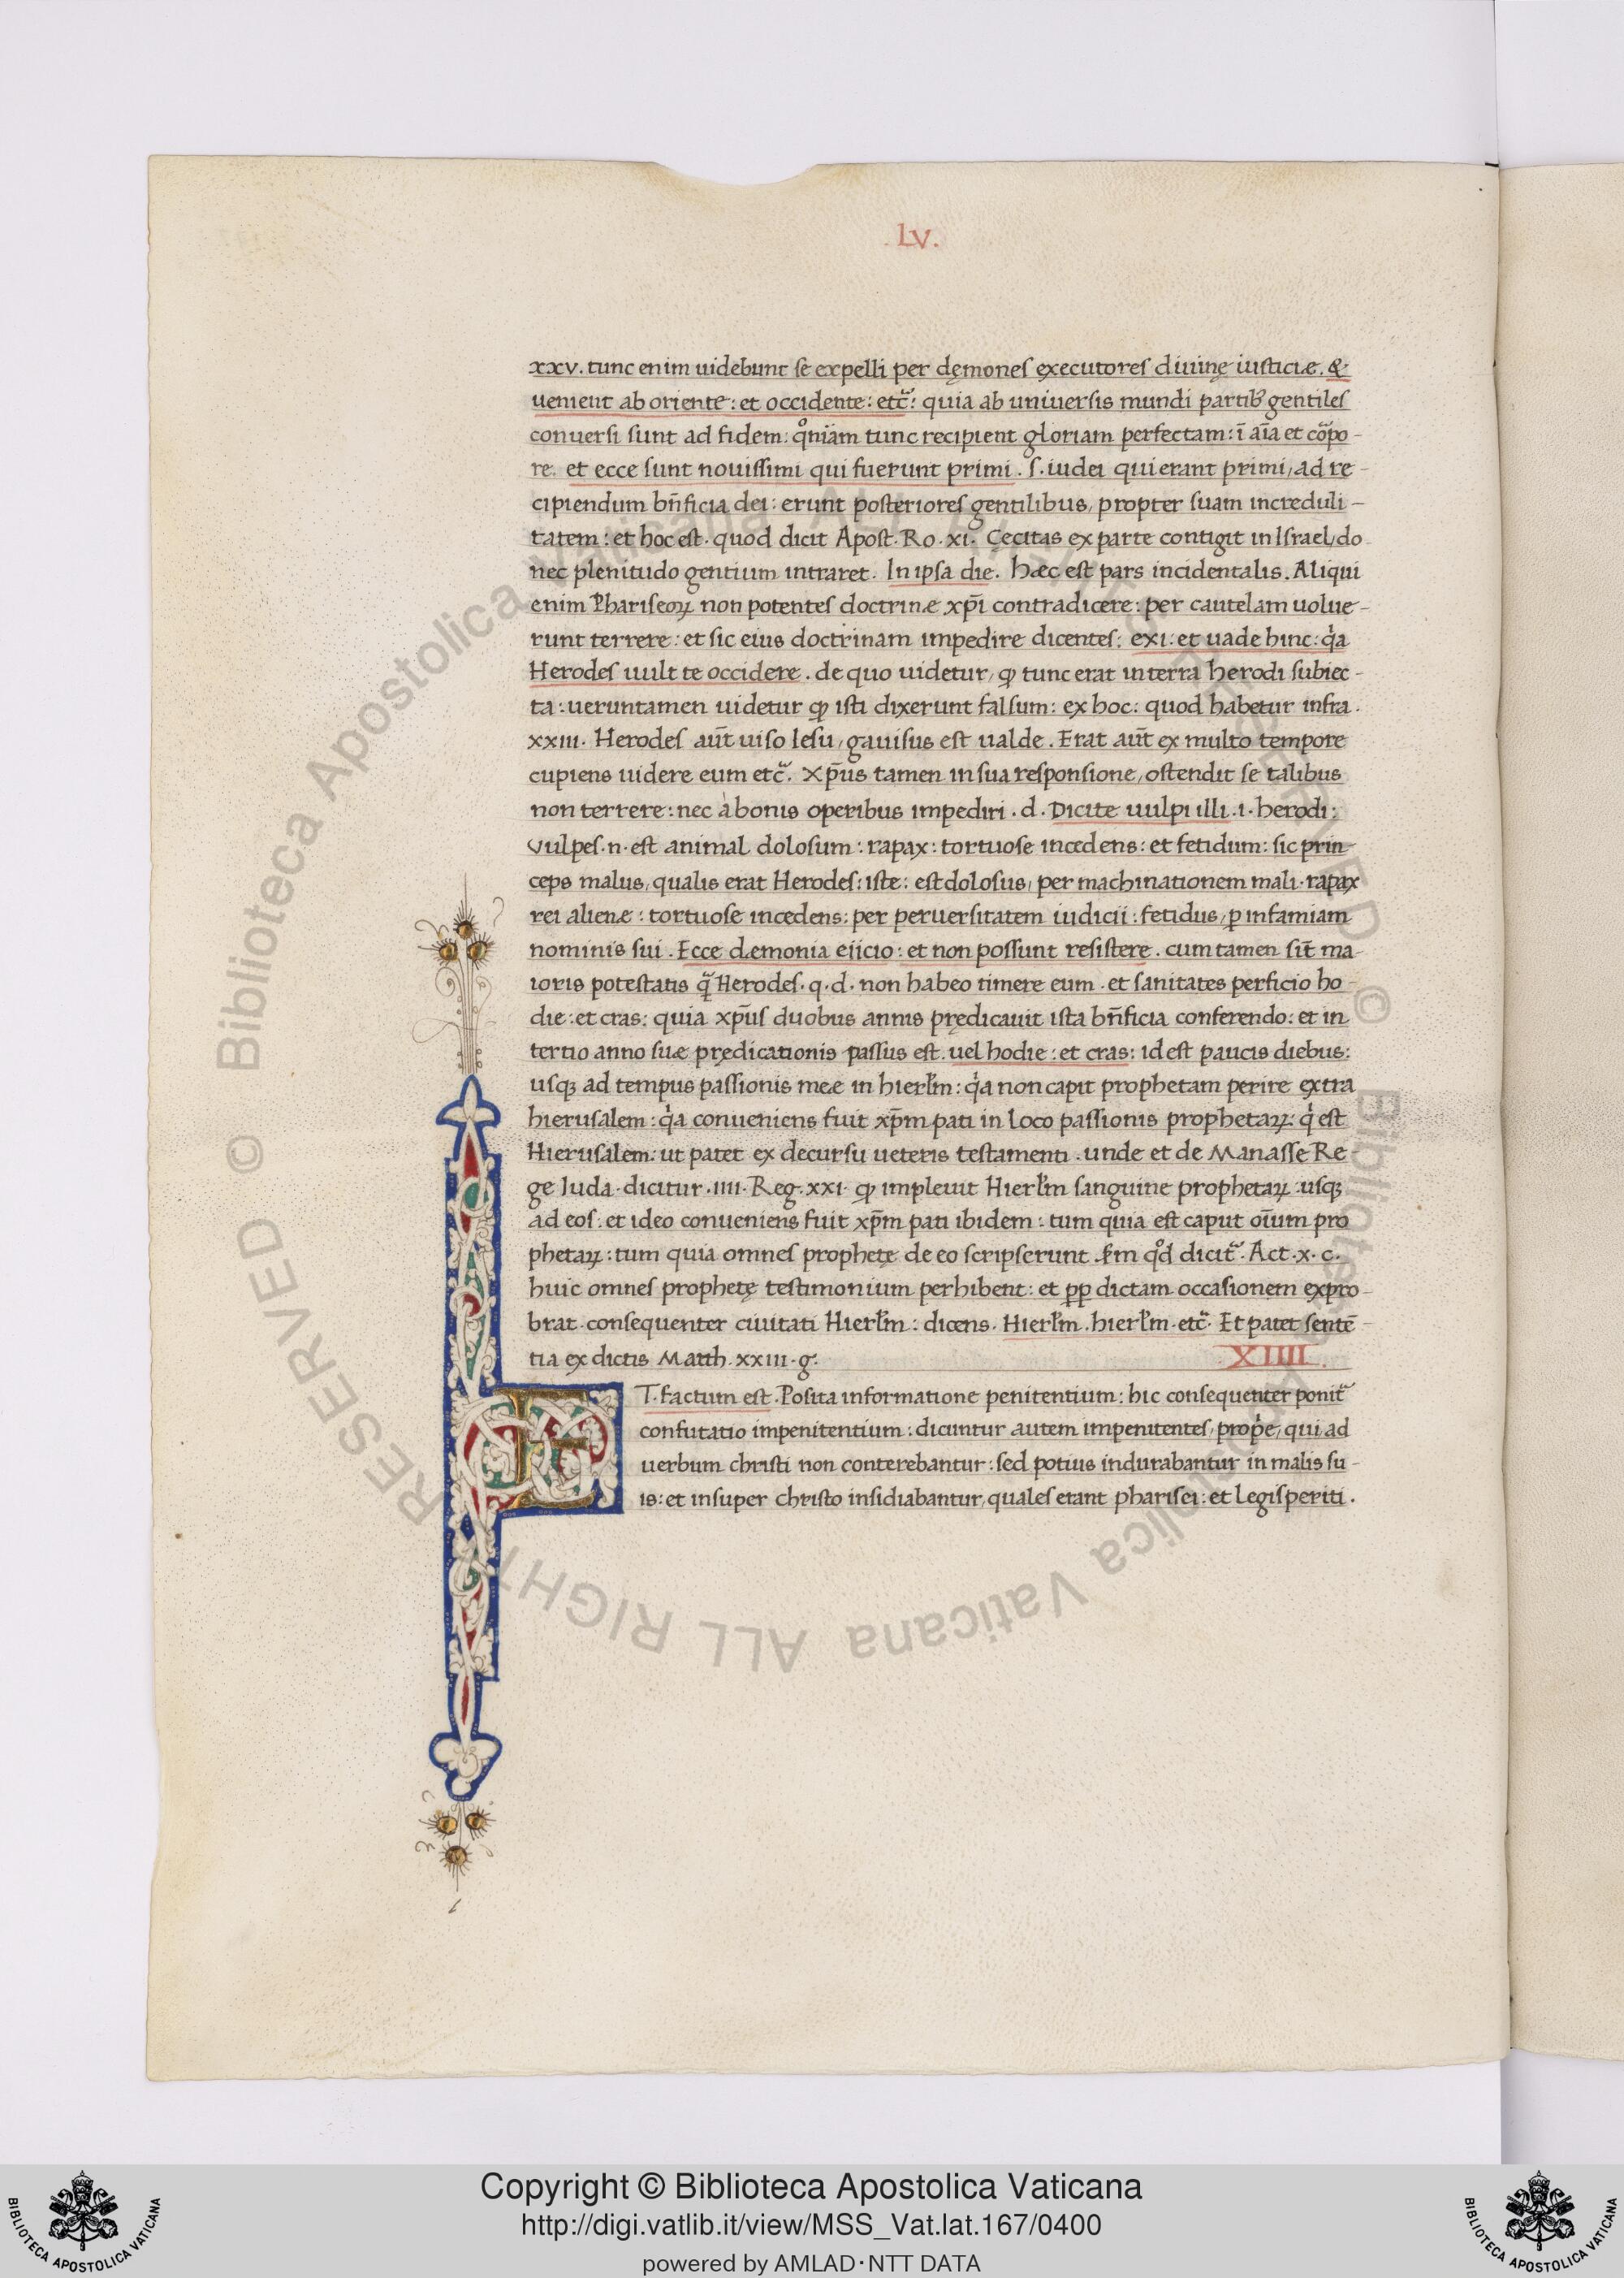 .LV.
xxv. tunc enim uidebunt se expelli per dęmones executores diuinę iusticiæ. &
uenient ab oriente: et occidente: etc̃: quia ab uniuersis mundi partib᷒ gentiles
conuersi sunt ad fidem: qͦniam tunc recipient gloriam perfectam: ī aīa et cõpo-
re. et ecce sunt nouissimi qui fuerunt primi. s. iudei qui erant primi, ad re-
cipiendum bñficia dei: erunt posteriores gentilibus, propter suam increduli-
tatem: et hoc est. quod dicit Apost. Ro. xi. Cęcitas ex parte contigit in Israel, do
nec plenitudo gentium intraret. In ipsa die. hæc est pars incidentalis. Aliqui
enim Phariseoꝝ non potentes doctrinæ xp̄i contradicere: per cautelam uolue-
runt terrere: et sic eius doctrinam impedire dicentes: exi: et uade hinc: qͥa
Herodes uult te occidere. de quo uidetur, ꝙ tunc erat in terra herodi subiec-
ta: ueruntamen uidetur ꝙ isti dixerunt falsum: ex hoc: quod habetur infra.
xxiii. Herodes aūt uiso Iesu, gauisus est ualde. Erat aūt ex multo tempore
cupiens uidere eum etc̃. Xp̄us tamen in sua responsione, ostendit se talibus
non terrere: nec à bonis operibus impediri. d. Dicite uulpi illi .i. herodi:
Vulpes .n. est animal dolosum: rapax: tortuose incedens: et fetidum: sic prin-
ceps malus, qualis erat Herodes: iste: est dolosus, per machinationem mali. rapax
rei alienæ: tortuose incedens: per peruersitatem iudicii: fetidus, ꝑ infamiam
nominis sui. Ecce dæmonia eiicio: et non possunt resistere. cum tamen sīt ma-
ioris potestatis q̃ Herodes. q. d. non habeo timere eum. et sanitates perficio ho-
die: et cras: quia xp̄us duobus annis prędicauit ista bñficia conferendo: et in
tertio anno suæ prędicationis passus est. uel hodie: et cras: id est paucis diebus:
usqꝫ ad tempus passionis meæ in hierłm: qͥa non capit prophetam perire extra
hierusalem: qͥa conueniens fuit xp̄m pati in loco passionis prophetaꝝ: qͥ est
Hierusalem: ut patet ex decursu ueteris testamenti. unde et de Manasse Re-
ge Iuda dicitur .iiii. Reg. xxi. ꝙ impleuit Hierłm sanguine prophetaꝝ: usqꝫ
ad eos: et ideo conueniens fuit xp̄m pati ibidem: tum quia est caput oīum pro
phetaꝝ: tum quia omnes prophetę de eo scripserunt. ẜm qͦd dicit᷑. Act. x. c.
huic omnes prophetę testimonium perhibent: et ꝓꝑ dictam occasionem expro-
brat consequenter ciuitati Hierłm: dicens. Hierłm. hierłm. etc̃. Et patet sentē-
tia ex dictis Matth. xxiii. g.
XIIII.
ET factum est. Posita informatione penitentium: hic consequenter ponit᷑
confutatio impenitentium: dicuntur autem impenitentes, propͥe, qui ad
uerbum christi non conterebantur: sed potius indurabantur in malis su-
is: et insuper christo insidiabantur, quales erant pharisei: et legisperiti.
RESERVED © Biblioteca Apostolica Vaticana ALL RIGHTS RESERVED © Biblioteca Apostolica Vaticana ALL RIGHT
BIBLIOTECA APOSTOLICA VATICANA
Copyright © Biblioteca Apostolica Vaticana
http://digi.vatlib.it/view/MSS_Vat.lat.167/0400
powered by AMLAD・NTT DATA
BIBLIOTECA APOSTOLICA VATICANA